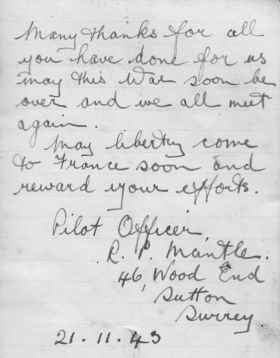 Many thanks for all
you have done for us
may this war soon be
over and we all meet
again.
May liberty come
to France soon and
reward your efforts.
Pilot Officer,
R. P. Mantle.
46, Wood End
Sutton
Surrey
21.11.43